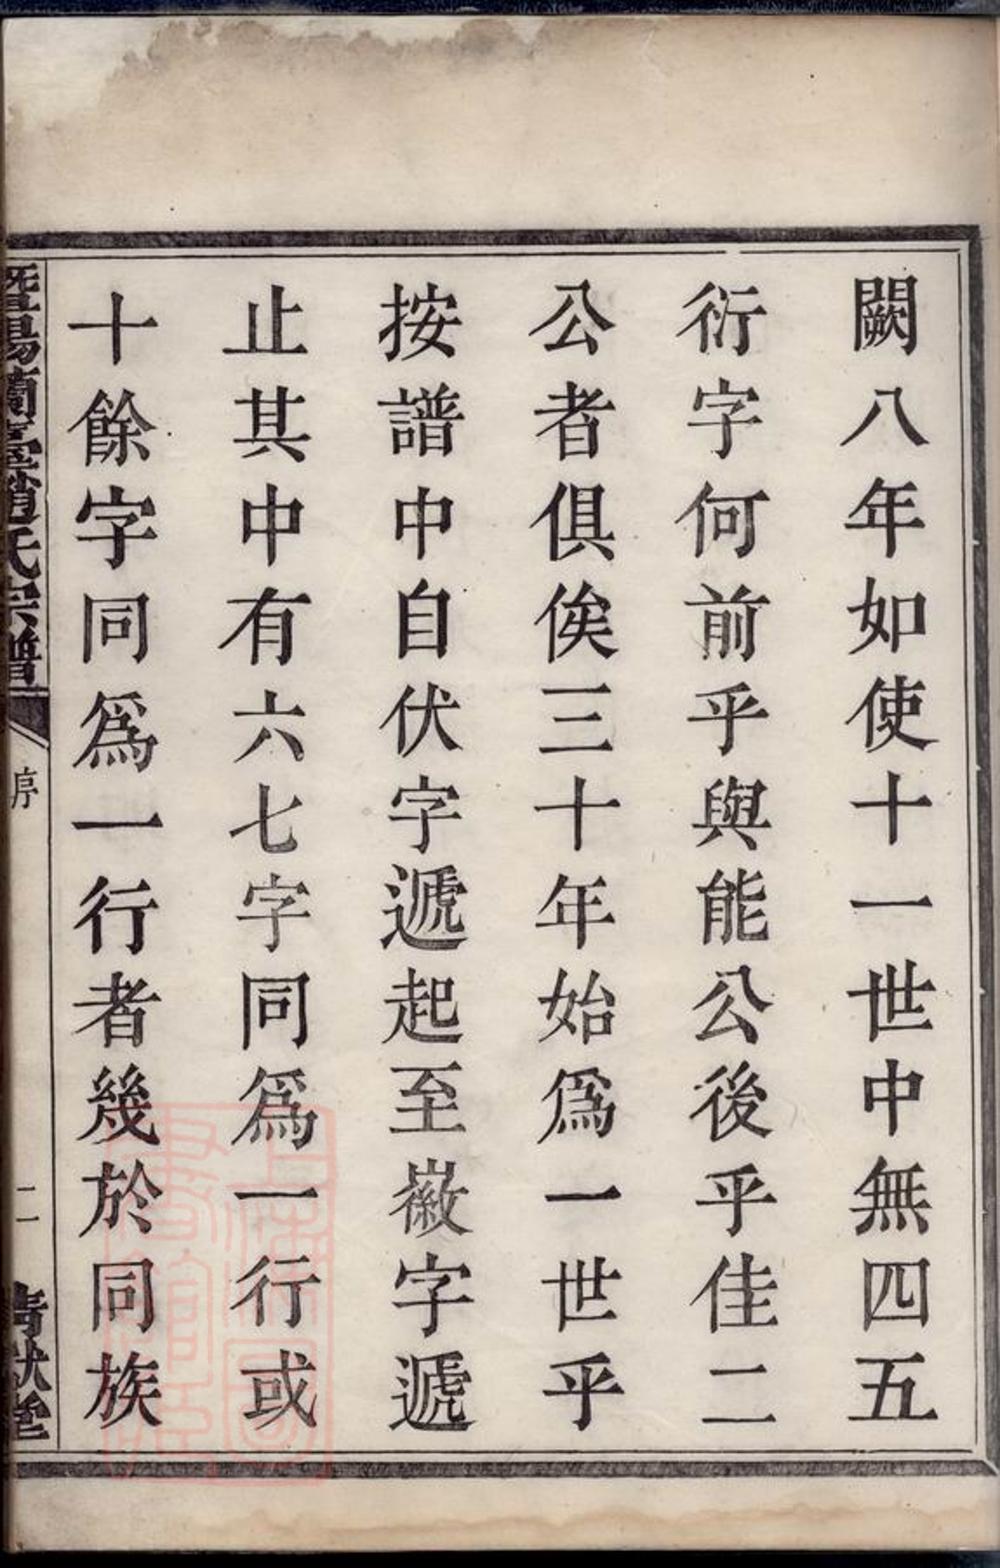 闕八年如使十一世中無四五
衍字何前乎與能公後乎佳二
公者俱俟三十年始爲一世乎
按譜中自伏字遞起至徽字遞
止其中有六七字同爲一行或
十餘字同爲一行者幾於同族
暨陽蘭臺趙氏宗譜
序
二